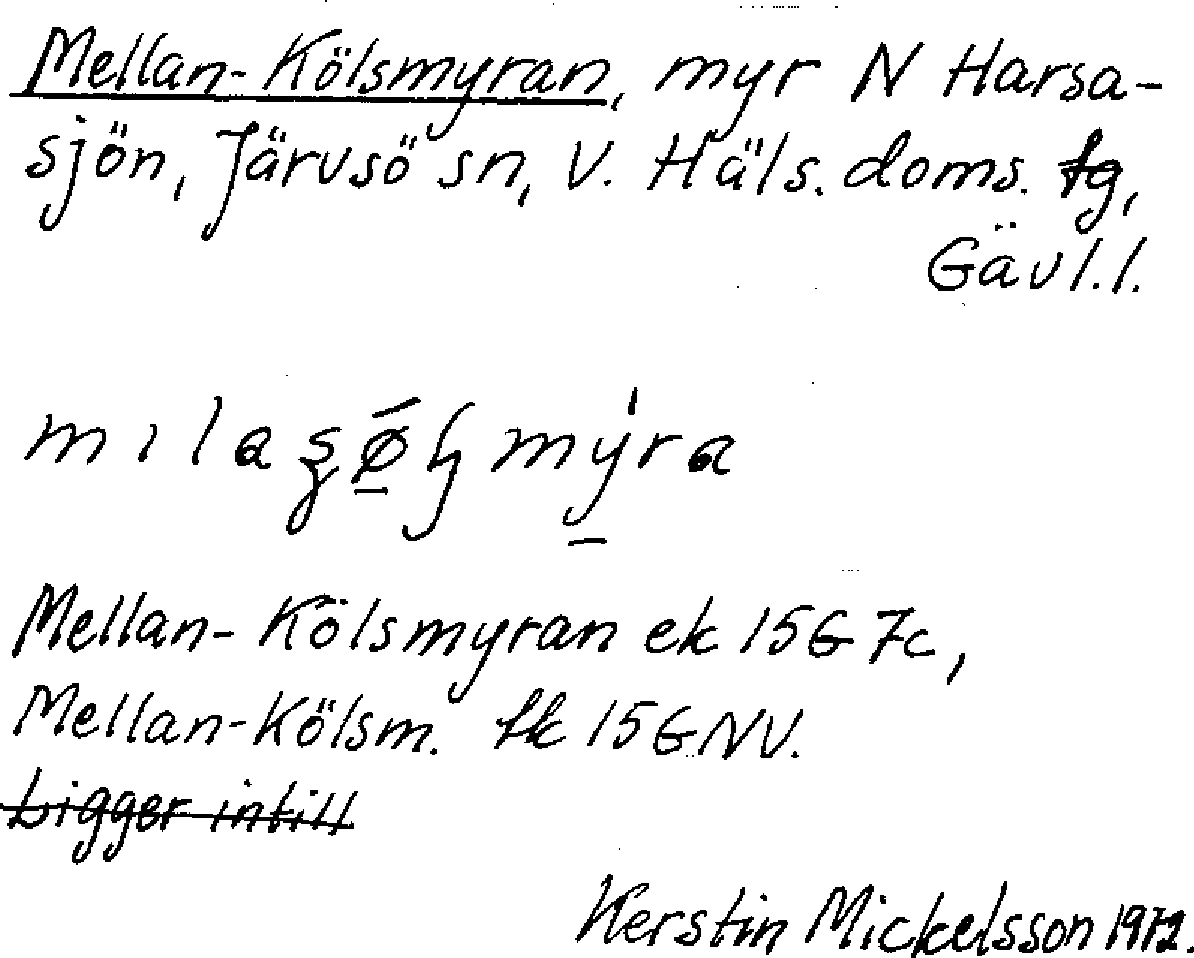 Mellan-Kölsmyran, myr N Harsa-
sjön, Järvsö sn, V. Häls. doms. tg,
Gävl.l.
Mellan-Kölsmyran ek 15G 7c,
Mellan-Kölsm. tk 15G NV.
Ligger intill
Kerstin Mickelsson 1972.